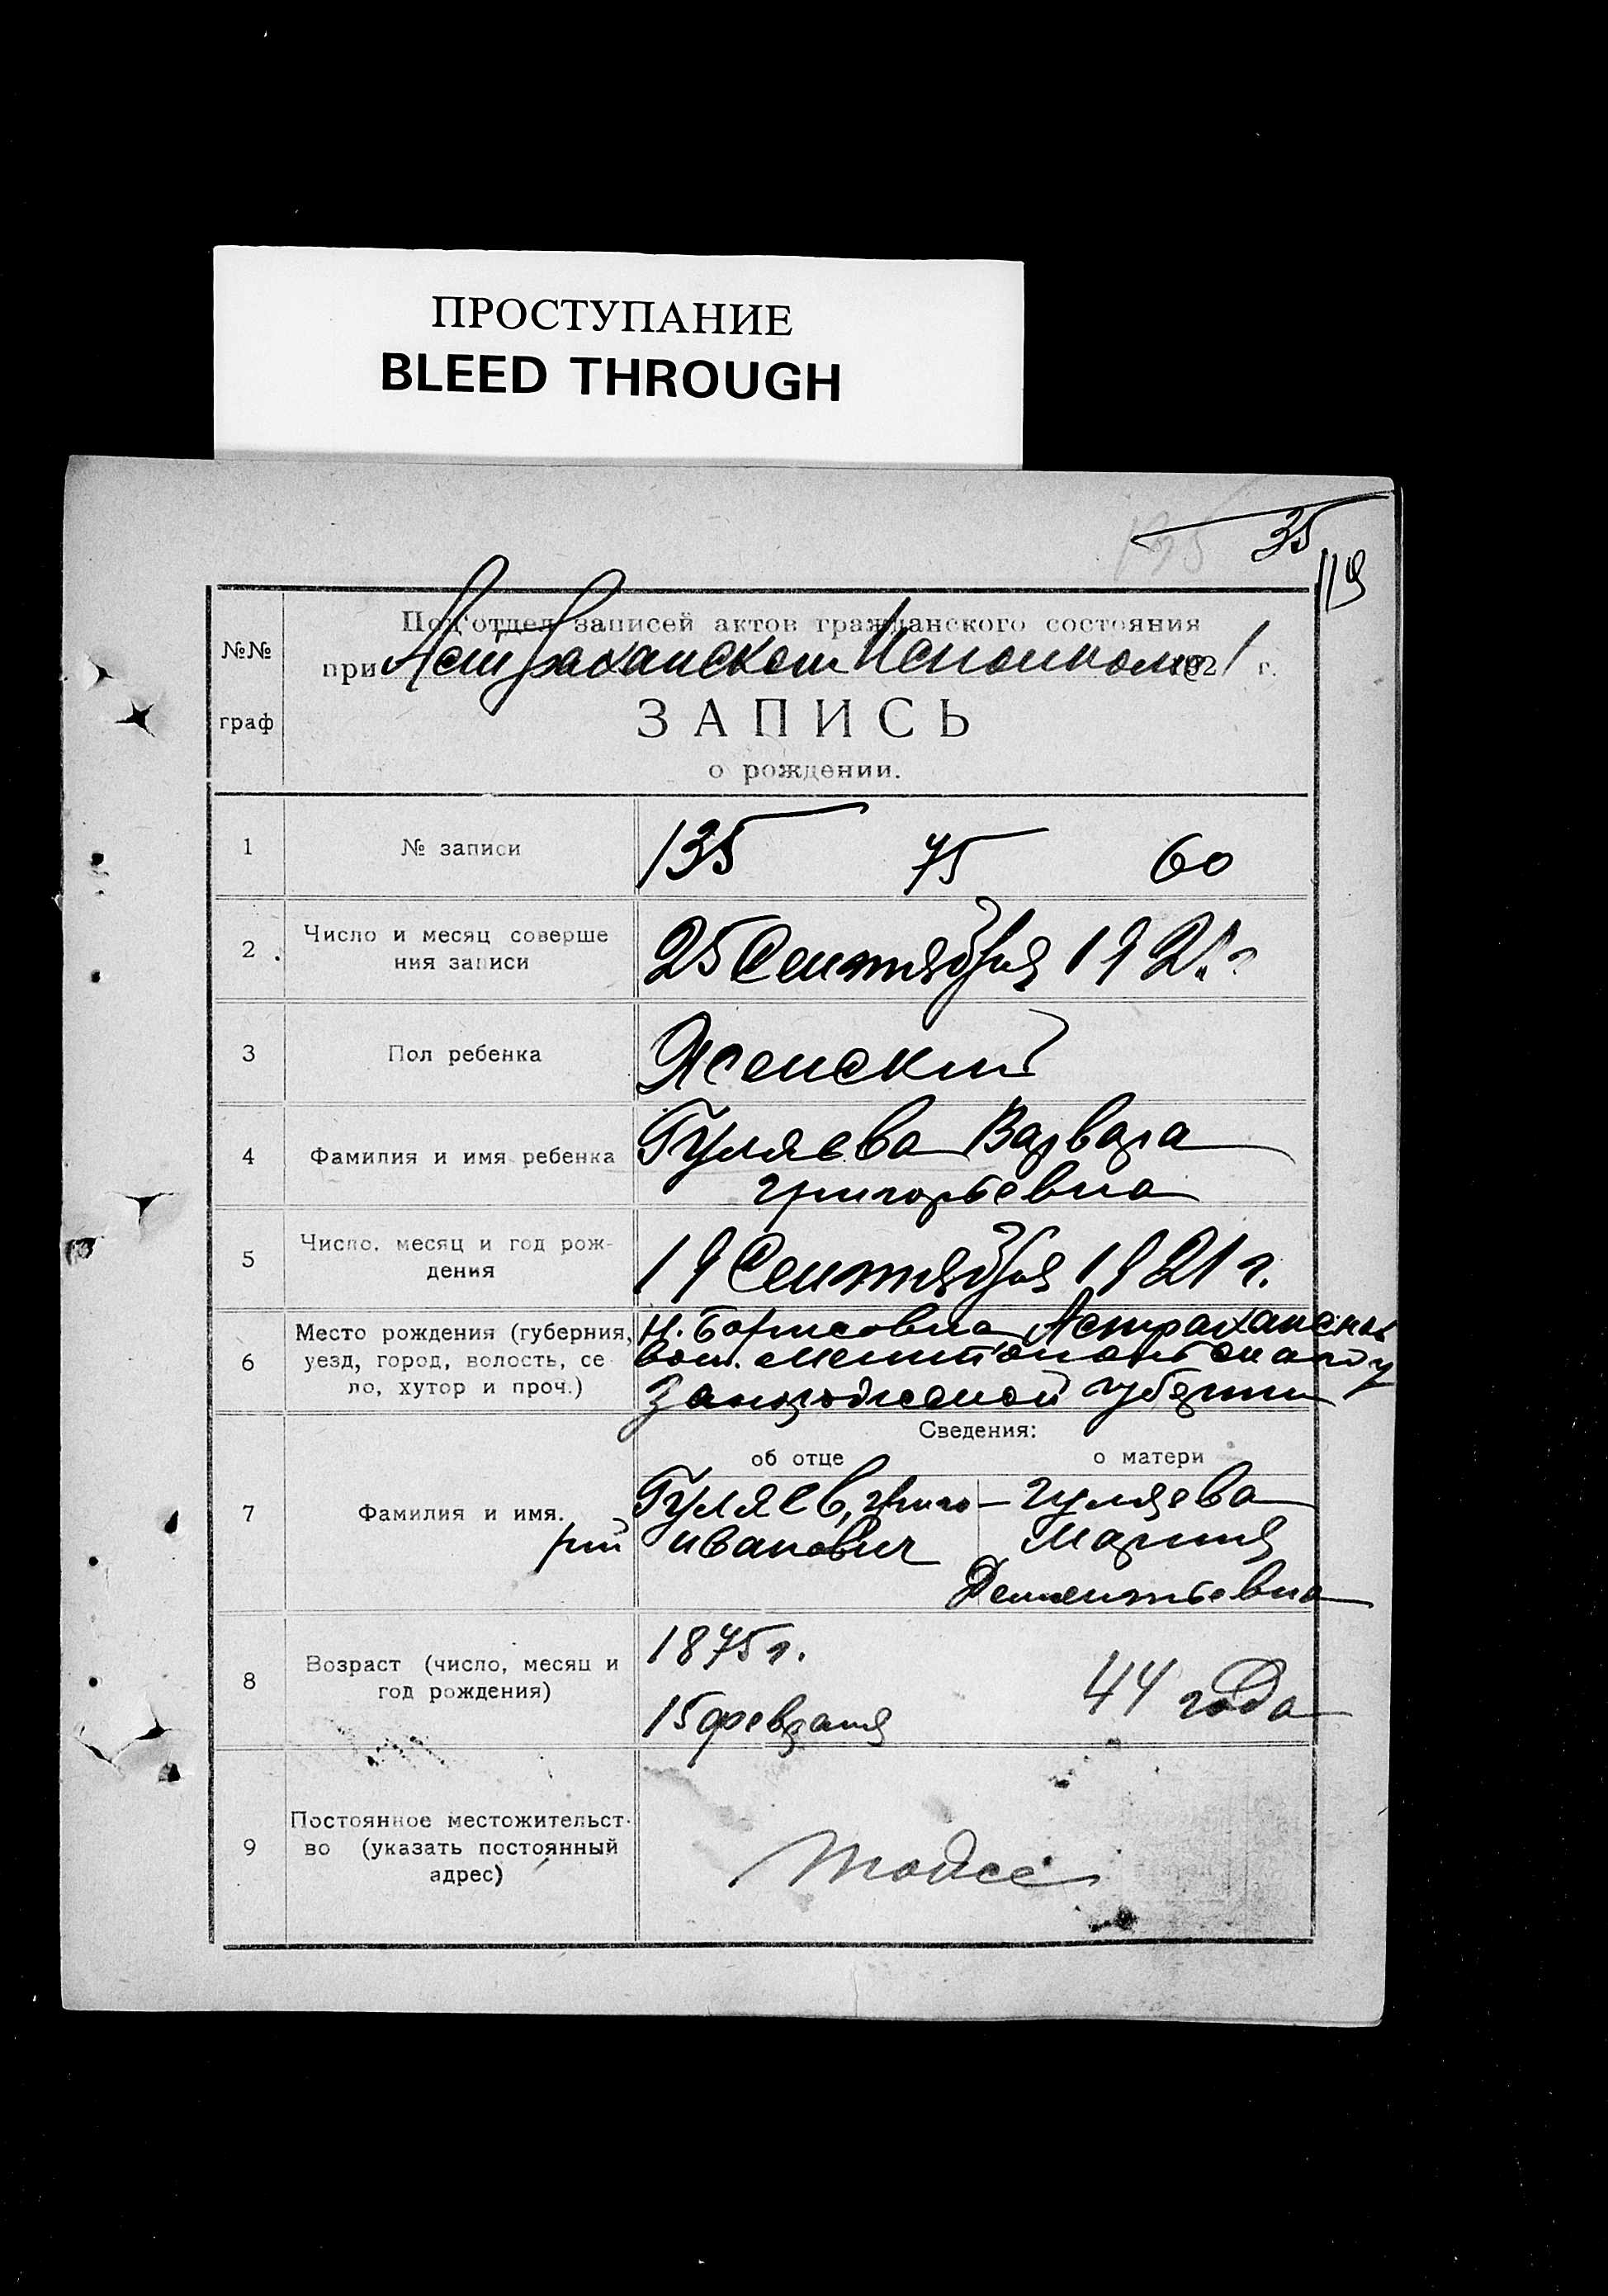 ПРОСТУПАНИЕ
BLEED THROUGH
135 35
119
№№
граф
Под'отдел записей актов гражданского состояния
при Астраханском Исполкоме 1921 г.
ЗАПИСЬ
о рождении.
1 № записи 135 75 60
2 Число и месяц соверше 25 Сентября 1921 г
ния записи
3 Пол ребенка Женский
4 Фамилия и имя ребенка Гуляева Варвара
Григорьевна
5 Число, месяц и год рож- 19 Сентября 1921 г.
дения
6 Место рождения (губерния, Н. Борисовка Астраханской
уезд, город, волость, се вол. Мелитопольск
ло, хутор и проч.) Запорожской губернии
Сведения:
об отце о матери
7 Фамилия и имя. Гуляев, Григо- Гуляева
рий Иванович Мария
Дементьевна
8 Возраст (число, месяц и 1875 г. 44 года
год рождения) 15 февраля
9 Постоянное местожительст-
во (указать постоянный тоже
адрес)